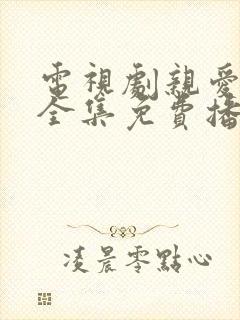 電視劇親愛
全集免費播
凌晨零點心